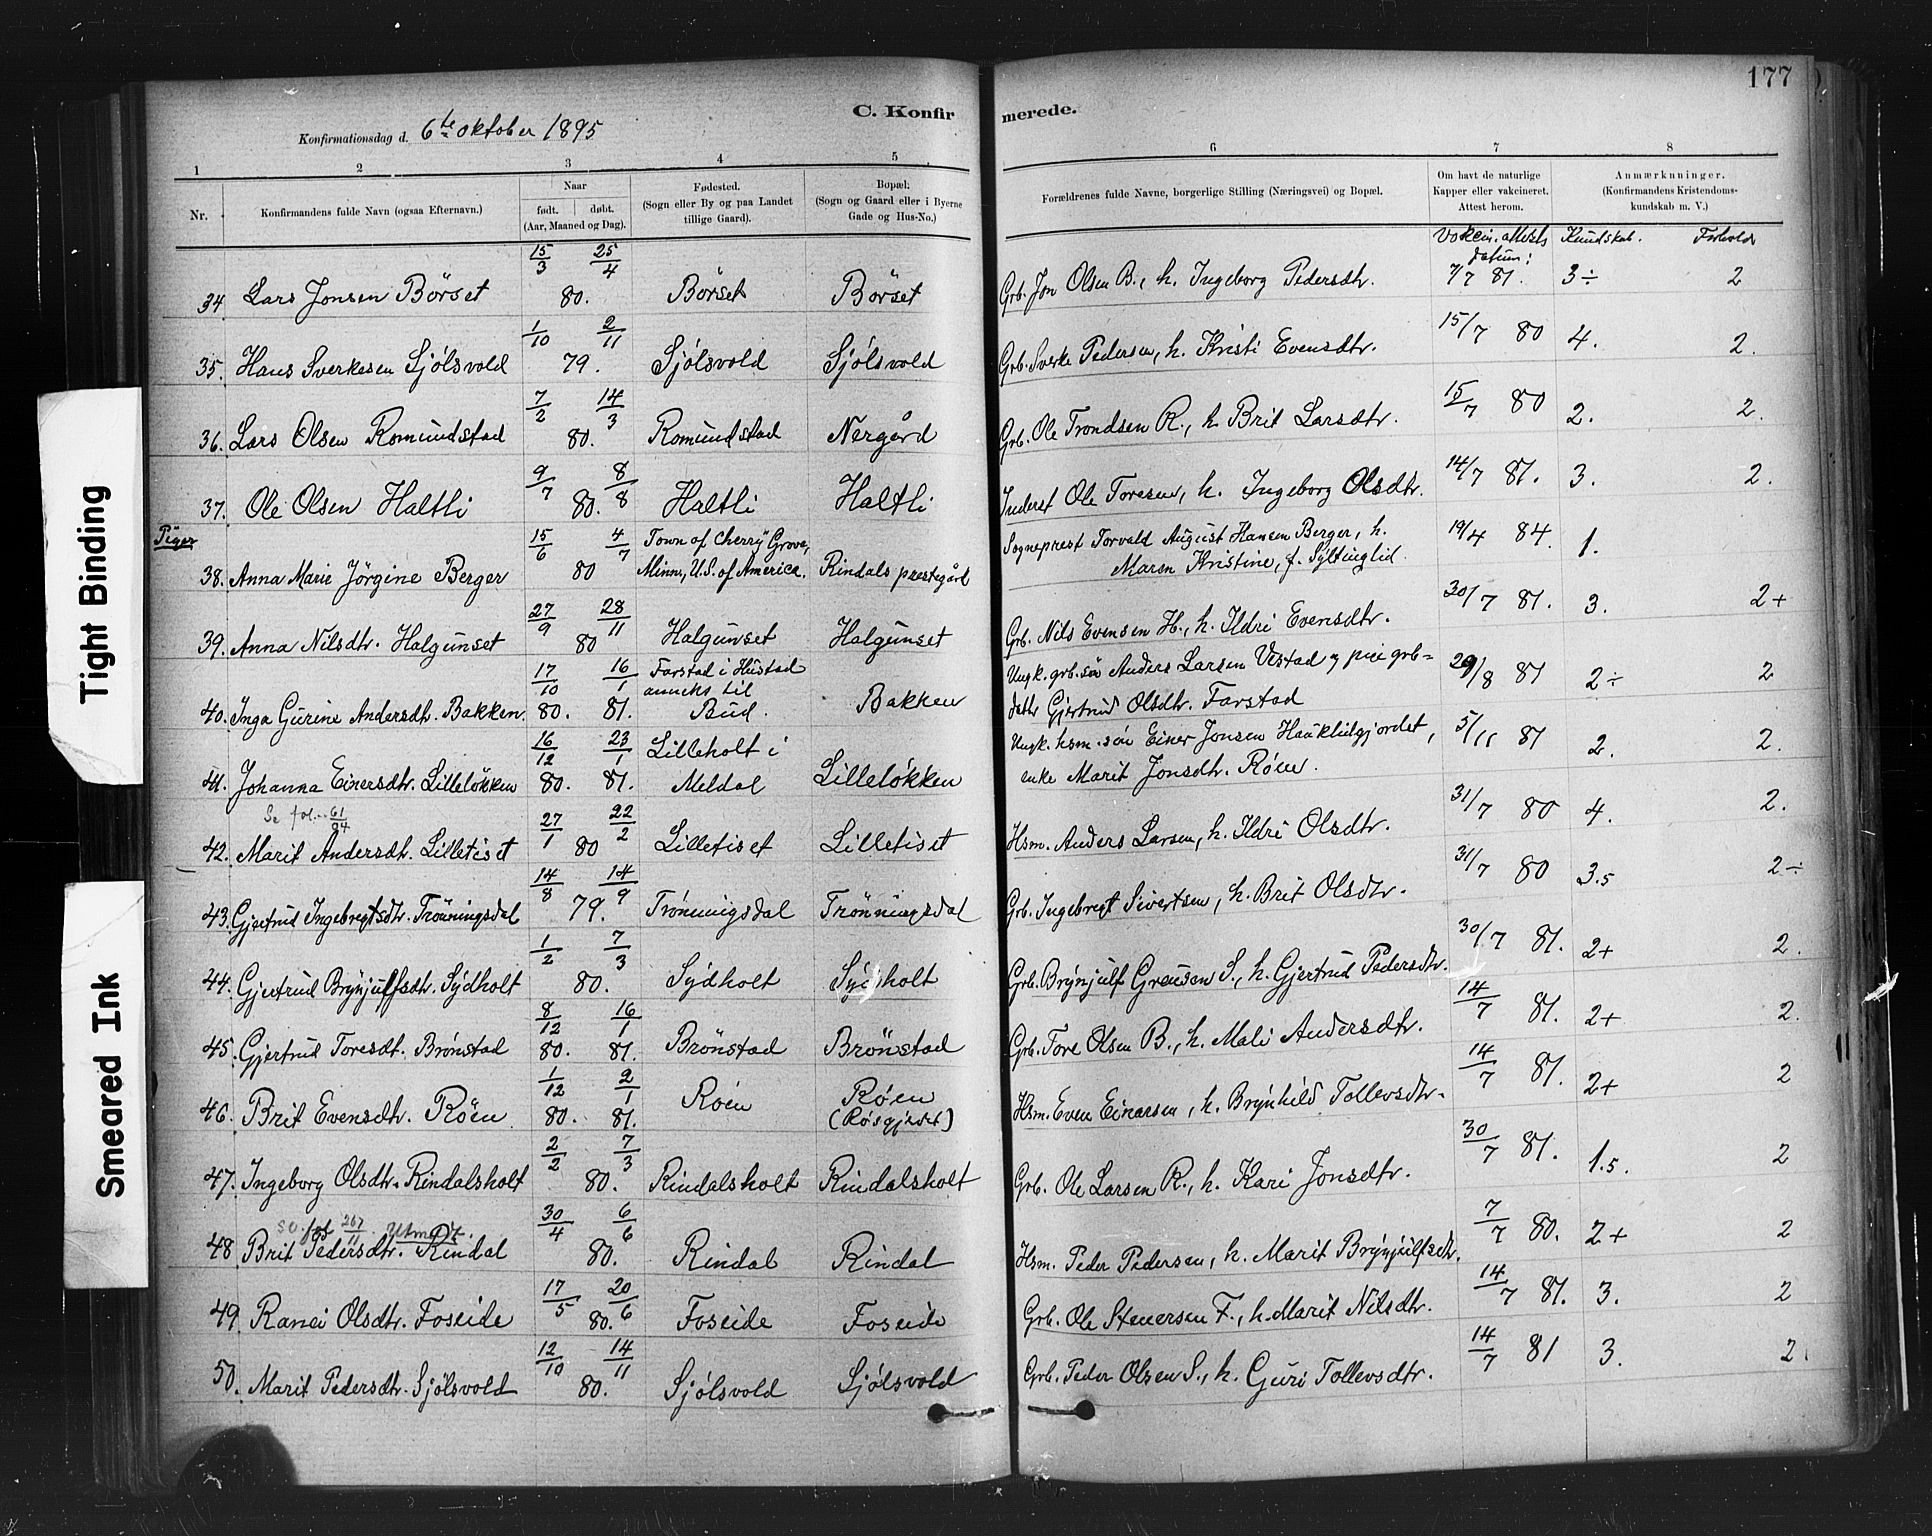 177
C. Konfirmerede.
Konfirmationsdag d. 6te oktober 1895
1 2 3 4 5 6 7 8
Nr. Konfirmandens fulde Navn (ogsaa Efternavn.) Naar født. døbt. (Aar, Maaned og Dag). Fødested. (Sogn eller By og paa Landet tillige Gaard). Bopæl: (Sogn og Gaard eller i Byerne Gade og Hus-No.) Forældrenes fulde Navne, borgerlige Stilling (Næringsvei) og Bopæl. Om havt de naturlige Kapper eller vakcineret. Attest herom. Anmærkninger. (Konfirmandens Kristendomskundskab m. V.)
Vakcin. attests datum: Kundskab. Forhold
34. Lars Jonsen Börset 15/3 25/4 80. Börset Börset Grb. Jon Olsen B., h. Ingeborg Pedersdtr. 7/7 81. 3÷ 2
35. Hans Sverkesen Sjölsvold 1/10 2/11 79. Sjölsvold Sjölsvold Grb. Sverke Pedersen, h. Kristi Evensdtr. 15/7 80 4. 2.
36. Lars Olsen Romundstad 7/2 14/3 80. Romundstad Nergård Grb. Ole Trondsen R., h. Brit Larsdtr. 15/7 80 2. 2.
37. Ole Olsen Haltli 9/7 8/8 80. Haltli Haltli Inderst Ole Toresen, h. Ingeborg Olsdtr. 14/7 81. 3. 2.
Piger
38. Anna Marie Jörgine Berger 15/6 4/7 80 Town of Cherry Grove, Minn., U.S. of America. Rindals prestegård Sogneprest Torvald August Hansen Berger, h. Maren Kristine, f. Syltinglid. 19/4 84. 1.
39. Anna Nilsdtr. Halgunset 27/9 28/11 80 Halgunset Halgunset Grb. Nils Evensen H., h. Ildri Evensdtr. 30/7 81. 3. 2+
40. Inga Gurine Andersdtr. Bakken 17/10 80. 16/1 81. Farstad i Hustad anneks til Bud. Bakken Ungk. grb. søn Anders Larsen Vestad og pige grb=datter Gjertrud Olsdtr. Farstad 29/8 81 2÷ 2
41. Johanna Einersdtr. Lillelökken 16/12 80. 23/1 81. Lilleholt i Meldal Lillelökken Ungk. hsm. søn Einer Jonsen Hauklidgjordet, enke Marit Jonsdtr. Röen. 5/11 81 2. 2.
Se fol. 61/94
42. Marit Andersdtr. Lilletiset 27/1 22/2 80 Lilletiset Lilletiset Hsm. Anders Larsen, h. Ildri Olsdtr. 31/7 80 4. 2.
43. Gjertrud Ingebregtsdtr. Trönningsdal 14/8 14/9 79. Trönningsdal Trönningsdal Grb. Ingebregt Sivertsen, h. Brit Olsdtr. 31/7 80 3.5 2÷
44. Gjertrud Brynjulfsdtr. Sydholt 1/2 7/3 80. Sydholt Sydholt Grb. Brynjulf Greusen S., h. Gjertrud Pedersdtr. 30/7 81. 2+ 2.
45. Gjertrud Toresdt. Brönstad 8/12 80. 16/1 81. Brönstad Brönstad Grb. Tore Olsen B., h. Mali Andersdtr. 14/7 81. 2+ 2.
46. Brit Evensdtr. Röen 1/12 80. 2/1 81. Röen Röen (Røsgjerdet) Hsm. Even Einarsen, h. Brynhild Tollevsdtr. 14/7 81. 2+ 2
47. Ingeborg Olsdtr. Rindalsholt 2/2 7/3 80. Rindalsholt Rindalsholt Grb. Ole Larsen R., h. Kari Jonsdtr. 30/7 81. 1.5. 2
se fol 267/11. Utmeldt.
48 Brit Pedersdtr. Rindal 30/4 6/6 80. Rindal Rindal Hsm. Peder Pedersen, h. Marit Brynjulfsdtr. 7/7 80. 2+ 2
49. Ranei Olsdtr. Foseide 17/5 20/6 80. Foseide Foseide Grb. Ole Stenersen F., h. Marit Nilsdtr. 14/7 81. 3. 2
50. Marit Pedersdtr. Sjölsvold 12/10 14/11 80. Sjölsvold Sjölsvold Grb. Peder Olsen S., h. Guri Tollevsdtr. 14/7 81 3. 2
Tight Binding
Smeared Ink